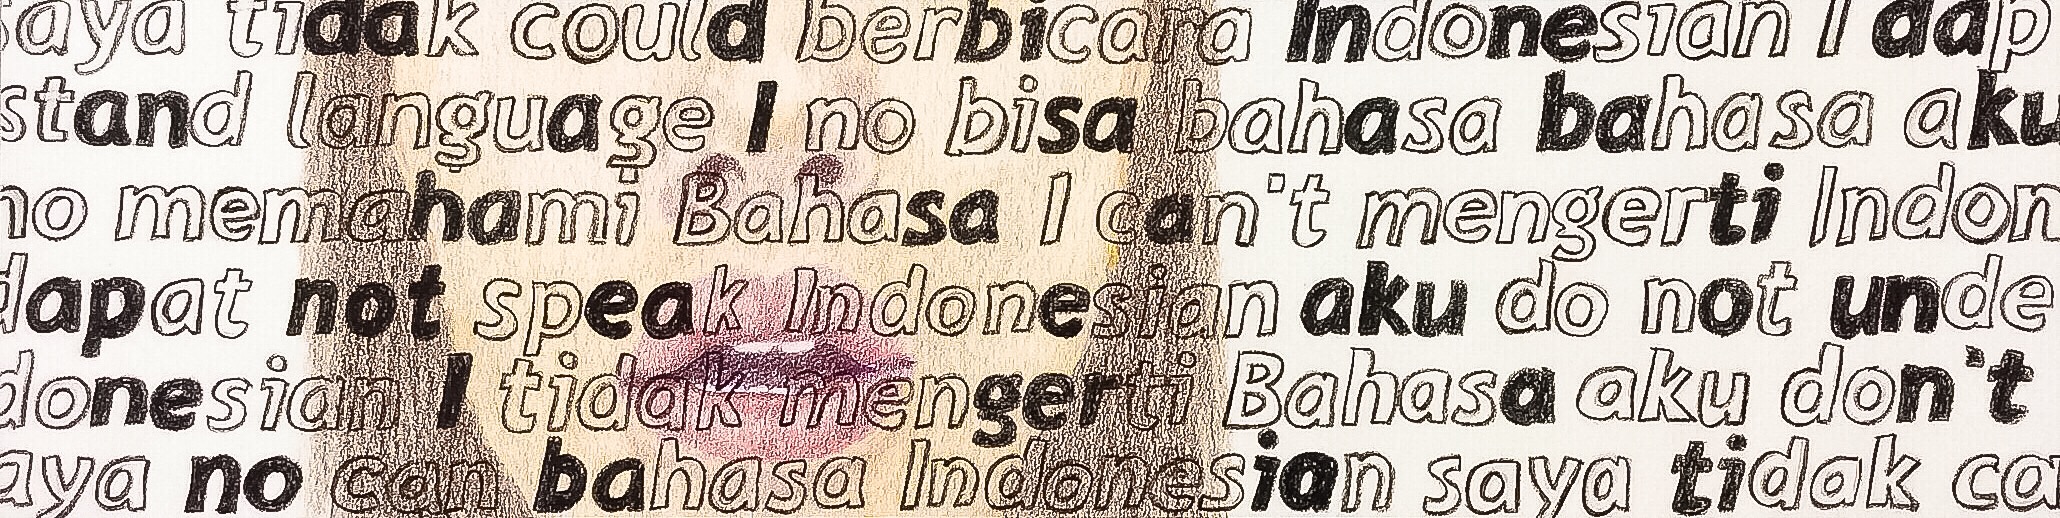 saya tidak could berbicara Indonesian I dap
stand language I no bisa bahasa bahasa aku
no memahami Bahasa I can't mengerti Indon
dapat not speak Indonesian aku do not unde
donesian I tidak mengerti Bahasa aku don't
aya no can bahasa Indonesian saya tidak ca